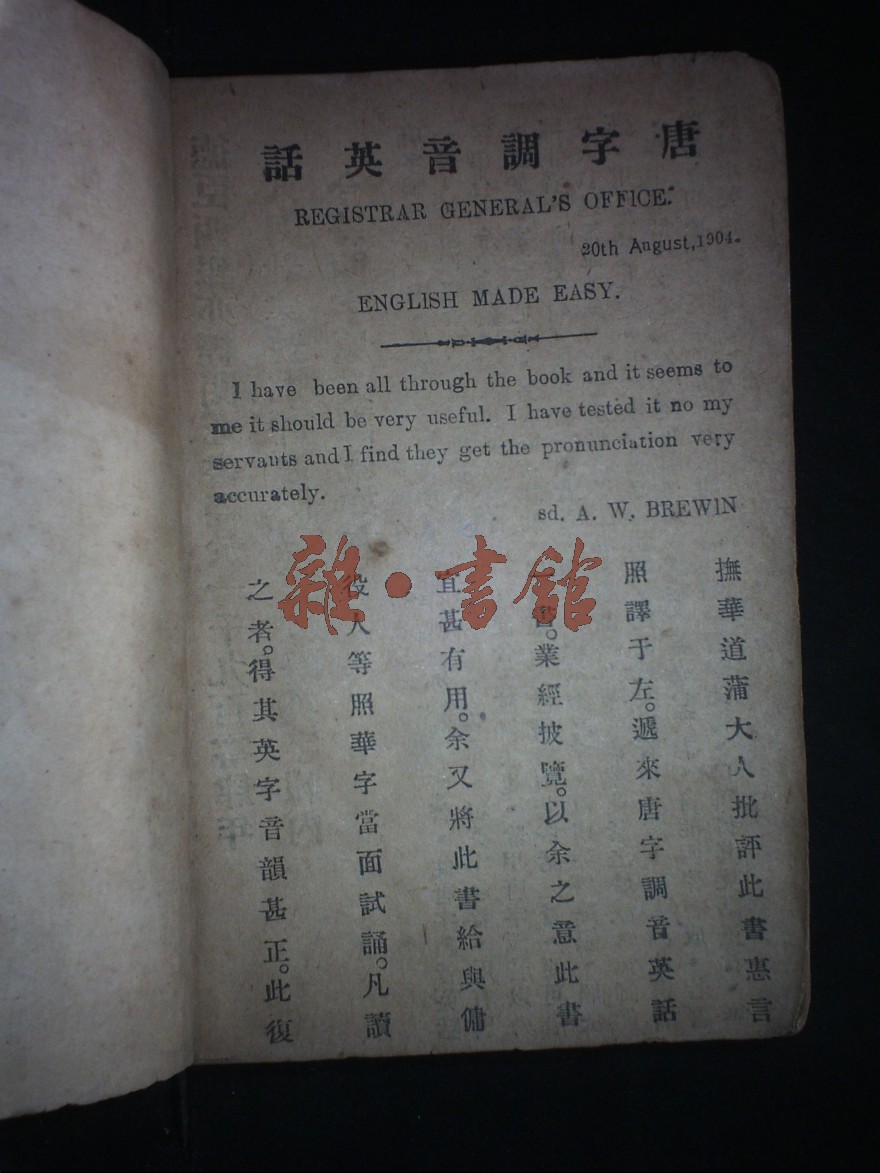 唐字調音英話
REGISTRAR GENERAL'S OFFICE.
20th August,1904.
ENGLISH MADE EASY.
I have been all through the book and it seems to
me it should be very useful. I have tested it no my
servants and I find they get the pronunciation very
accurately.
sd. A. W. BREWIN
撫華道蒲大人批評此書惠言
照譯于左。遞來唐字調音英話
書。業經披覽。以余之意此書
宜甚有用。余又將此書給與傭
役人等照華字當面試誦。凡讀
之者。得其英字音韻甚正。此復
雜·書館